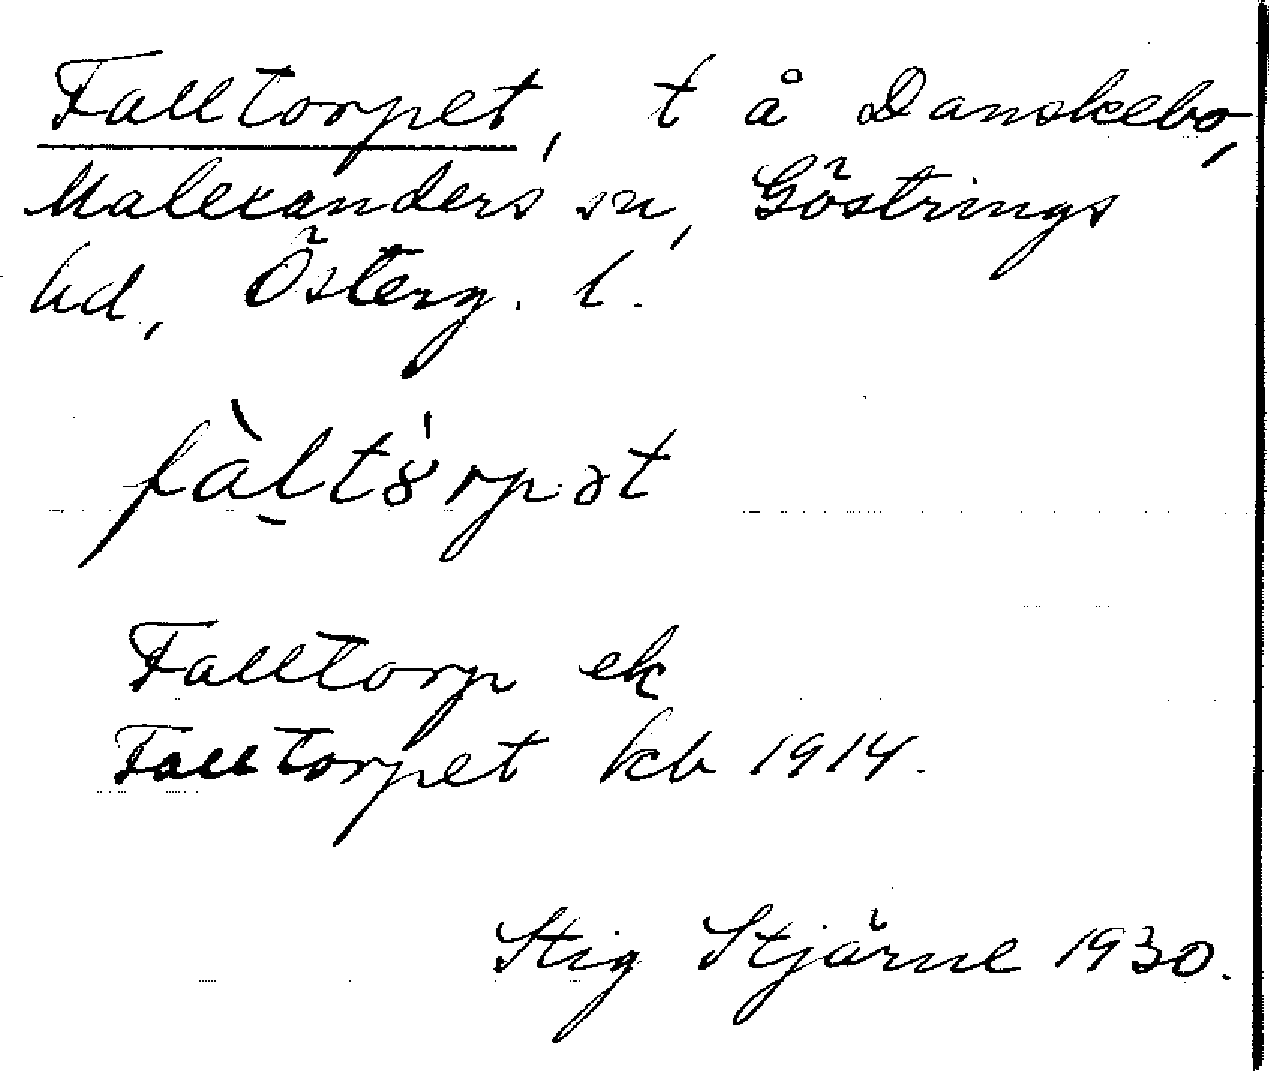 Falltorpet, t å Danskebo,
Malexanders sn, Göstrings
hd, Österg. l.
fàlt8́rpət
Falltorp ek
Falltorpet kb 1914.
Stig Stjärne 1930.